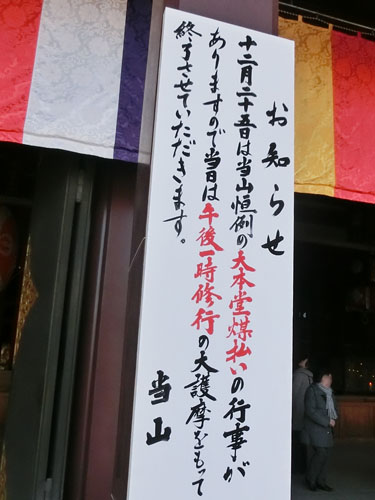 お知らせ
十二月二十五日は当山恒例の大本堂煤払いの行事が
ありますので当日は午後一時修行の大護摩をもって
終了させていただきます。
当山